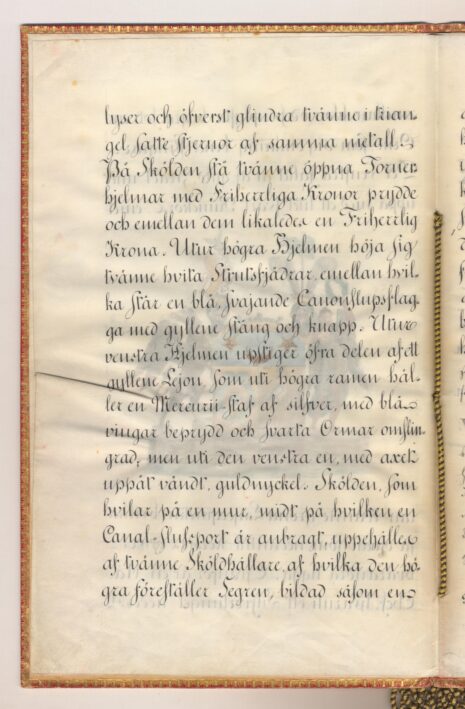 lyser och öfverst glindra tvänne i trian-
gel satte stjernor af samma metall.
På Skölden stå tvänne öppna Torner-
hjelmar med Friherrliga Kronor prydde
och emellan dem likaledes en Friherrlig
Krona. Utur högra Hjelmen höja sig
tvänne hvita Strutsfjädrar, emellan hvil-
ka står en blå, svajande Canonslupsflag-
ga med gyllene stång och knapp. Utur
venstra Hjelmen upstiger öfra delen af ett
gyllene Lejon, som uti högra ramen hål-
ler en Mercurii-staf af silfver, med blå
vingar beprydd och svarta Ormar omslin-
grad, men uti den venstra en, med axet
uppåt vändt, guldnyckel. Skölden, som
hvilar på en mur, midt på hvilken en
Canal-Slussport är anbragt, uppehålles
af tvänne Sköldhållare, af hvilka den hö-
gra föreställer Segren, bildad såsom en